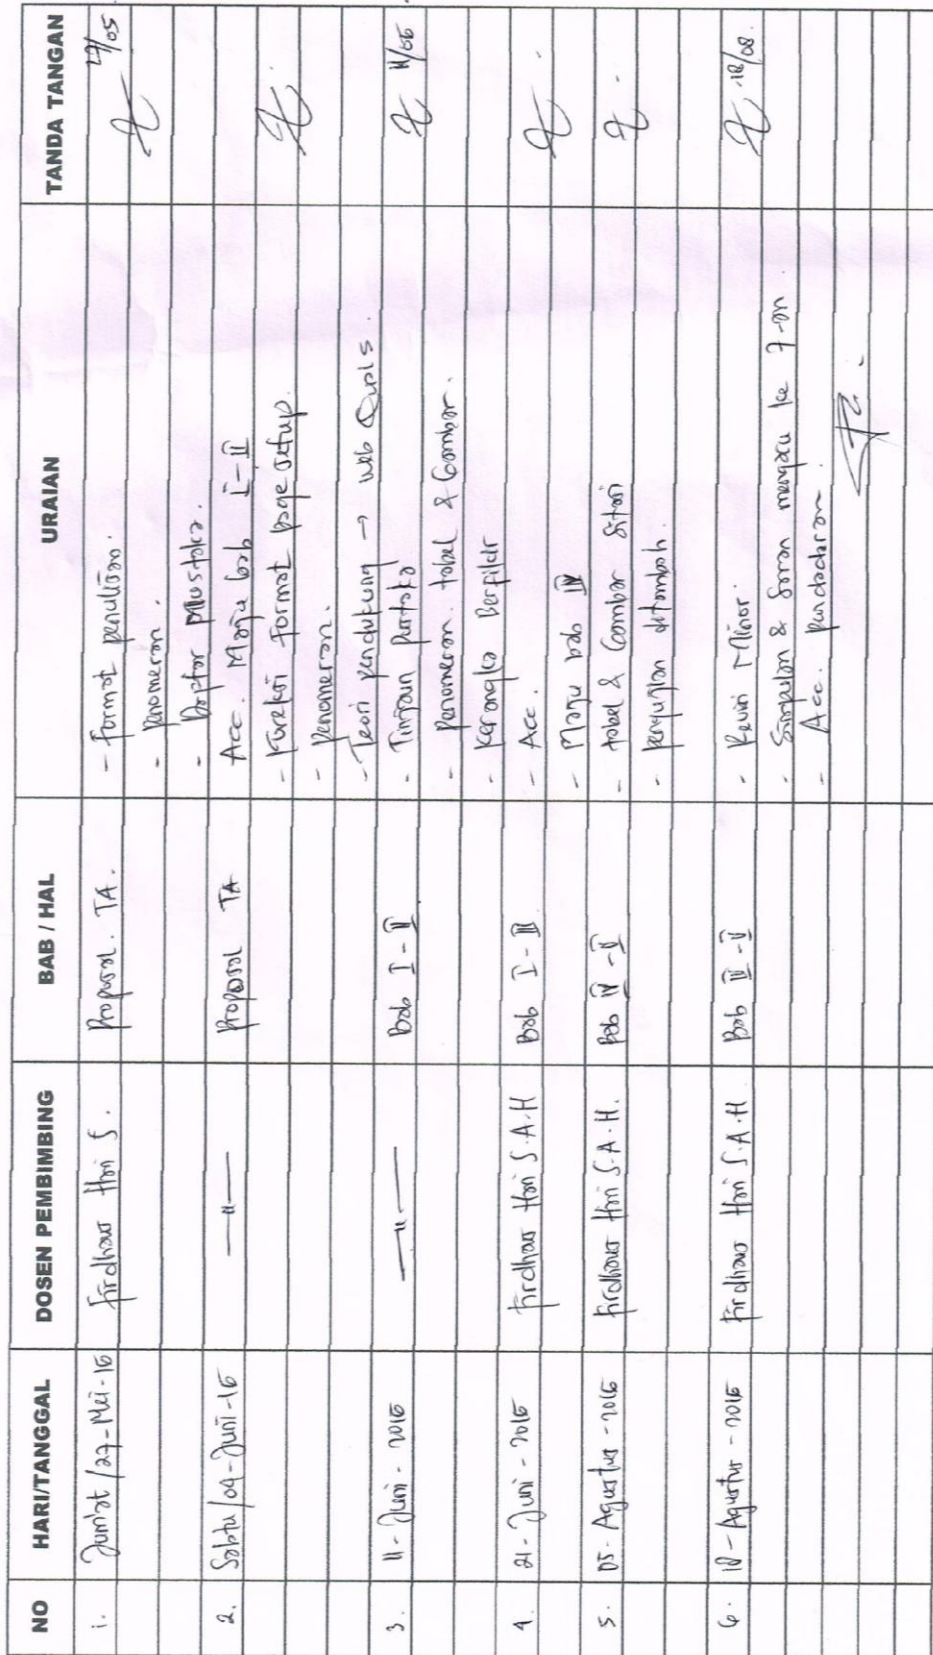 NO HARI/TANGGAL DOSEN PEMBIMBING BAB / HAL URAIAN TANDA TANGAN
1. Jum'at /27-Mei-16 Firdhaus Hari S. Proposal. TA. - Format penulisan. 27/05
- Penomeran.
- Daptar Pustaka.
2. Sabtu /04-Juni-16 —"— Proposal TA Acc. Maju bab I-II
- Format page setup.
- Penomeran.
- Teori pendukung → Web Qual
3. 11-Juni-2016 —"— Bab I-II - Pustaka 11/06
- Penomeran. tabel & Gambar.
- Kerangka Berfikir
4. 21-Juni-2016 Firdhaus Hari S.A.H Bab I-III - Acc.
- Maju bab IV
5. 05-Agustus-2016 Firdhaus Hari S.A.H. Bab IV-V - tabel & Gambar
- pengujian ditambah.
6. 18-Agustus-2016 Firdhaus Hari S.A.H Bab - Revisi Minor. 18/08.
- Simpulan & Saran mengacu ke
- Acc. pendadaran